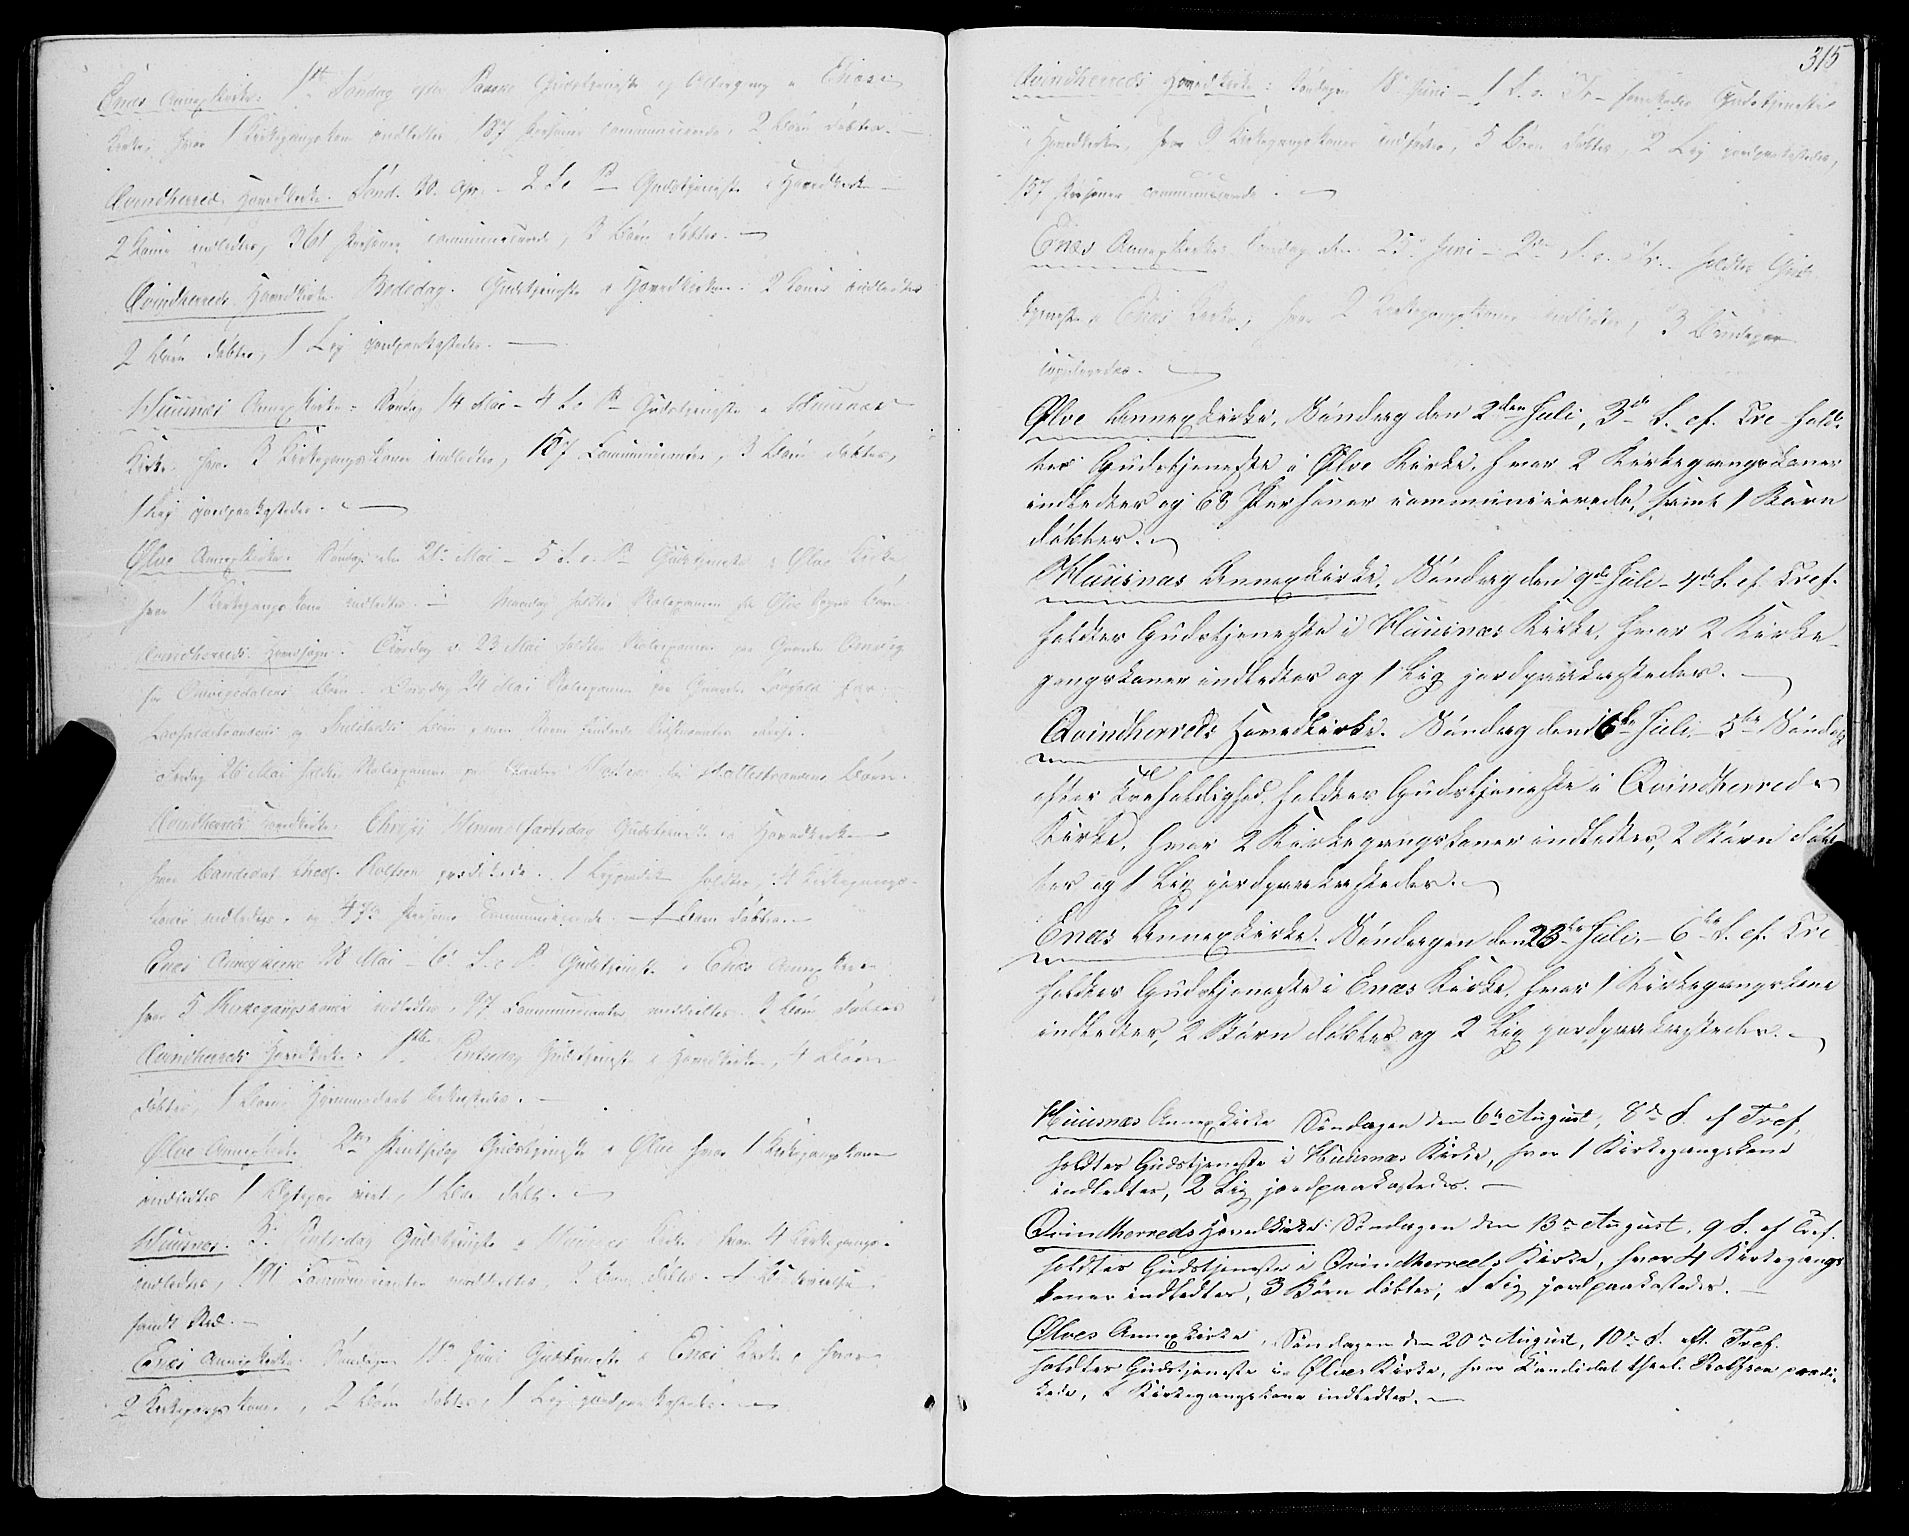 Enæs Annexkirke. 1ste Søndag efter Paaske Gudstjeneste og Altergang i Enæs
Kirke, hvor 1 Kirkegangskone indledtes 187 Personer communicerede, 2 Børn døbtes.
Qvindherreds Hovedkirke. Sønd. 30. Apr. - 2 S. e. P. Gudstjeneste i Hovedkirken
2 Koner indledtes, 361 Personer communicerede, 3 Børn døbtes.
Qvindherreds Hovedkirke. Bededag. Gudstjeneste i Hovedkirken. 2 Koner indledtes
2 Børn døbtes, 1 Lig jordpaakastedes.
Huusnæs Annexkirke. Søndag 14 Mai - 4 S. e. P. Gudstjeneste i Huusnæs
Kirke, hvor 3 Kirkegangskoner indledtes, 157 Communicanter, 3 Børn døbtes,
1 Lig jordpaakastedes.
Ølve Annexkirke. Søndag den 21 Mai - 5 S. e. P. Gudstjeneste i Ølve Kirke
hvor 1 Kirkegangskone indledtes. Mandag holdtes Skoleexamen for Ølve Sogns Børn
Qvindherreds Hovedsogn. Tirsdag d. 23 Mai holdtes Skoleexamen paa Gaarden Omvig
for Omvigedalens Børn. Onsdag 24 Mai Skoleexamen paa Gaarden
26 Mai holdtes Skoleexamen paa Gaarden Børn.
Qvindherreds Hovedkirke. Christi Himmelfartsdag Gudstjeneste i Hovedkirken
hvor Candidat theol. Rolfsen prædikede. 1 Ligprædik. holdtes, 4 Kirkegangs-
koner indledtes, og Personer Communicerede. 1 Barn døbtes
Enæs Annexkirke 28 Mai - 6 S. e. P. Gudstjeneste i Enæs Annexkirke
hvor 5 Kirkegangskoner indledtes, 97 Communicanter meddeltes. 3 Børn døbtes
Qvindherreds Hovedkirke. 1ste Pintsedag Gudstjeneste i Hovedkirken, 4 Børn
døbtes, 1 Barns Hjemmedaab bekræftedes.
Ølve Annexkirke. 2den Pintsedag Gudstjeneste i Ølve hvor 1 Kirkegangskone
indledtes 1 Ægtepar viet, 1 Barn døbt.
Huusnæs. 3. Pintsedag Gudstjeneste i Huusnæs Kirke, hvor 4 Kirkegangs-
indledtes, 191 Communicanter meddeltes. Børn døbtes. 1 Brudevielse
fandt Sted.
Enæs Annexkirke. Søndagen 11te Juni Gudstjeneste i Enæs Kirke, hvor
2 Kirkegangskoner, 2 Børn døbtes, 1 Lig jordpaakastedes.
315
Qvindherreds Hovedkirke: Søndagen 18 Juni - 1 S. e. Tr. Gudstjeneste
i Hovedkirken, hvor 9 Kirkegangskoner indledtes, 5 Børn døbtes, 2 Lig jordpaakastedes,
157 Personer communicerede.
Enæs Annexkirke. Søndag den 25 Juni - 2den S. e. Tr. holdtes Guds-
tjeneste i Enæs Kirke, hvor 2 Kirkegangskoner indledtes, 3 Brudepar
copuleredes.
Ølve Annexkirke. Søndag den 2den Juli, 3de S. ef. Tre. hold-
tes Gudstjeneste i Ølve Kirke, hvor 2 Kirkegangskoner
indledtes og 68 Personer communicerede, samt 1 Barn
døbtes.
Huusnæs Annexkirke. Søndag den 9de Juli - 4de S. ef. Tref.
holdtes Gudstjeneste i Huusnæs Kirke, hvor 2 Kirke-
gangskoner indledtes og 1 Lig jordpaakastedes.
Qvindherreds Hovedkirke. Søndag den 16de Juli - 5te Søndag
efter Trefoldighed, holdtes Gudstjeneste i Qvindherreds
Kirke, hvor 2 Kirkegangskoner indledtes, 2 Børn døb-
tes og 1 Lig jordpaakastedes.
Enæs Annexkirke. Søndagen den 23de Juli - 6te S. ef. Tre
holdtes Gudstjeneste i Enæs Kirke, hvor 1 Kirkegangskone
indledtes, 2 Børn døbtes og 2 Lig jordpaakastedes.
Huusnæs Annexkirke Søndagen den 6te August, 8de S. ef Tref.
holdtes Gudstjeneste i Huusnæs Kirke, hvor 1 Kirkegangskone
indledtes, 2 Lig jordpaakastedes. -
Qvindherreds Hovedkirke. Søndagen den 13de August, 9 S. ef Tref.
holdtes Gudstjeneste i Qvindherreds Kirke, hvor 4 Kirkegangs
koner indledtes, 3 Børn døbtes, 1 Lig jordpaakastedes. -
Ølves Annexkirke, Søndagen den 20de August, 10de S. eft. Tref.
holdtes Gudstjeneste i Ølves Kirke, hvor Kandidat theol. Rolfsen prædi-
kede, 2 Kirkegangskoner indledtes. -